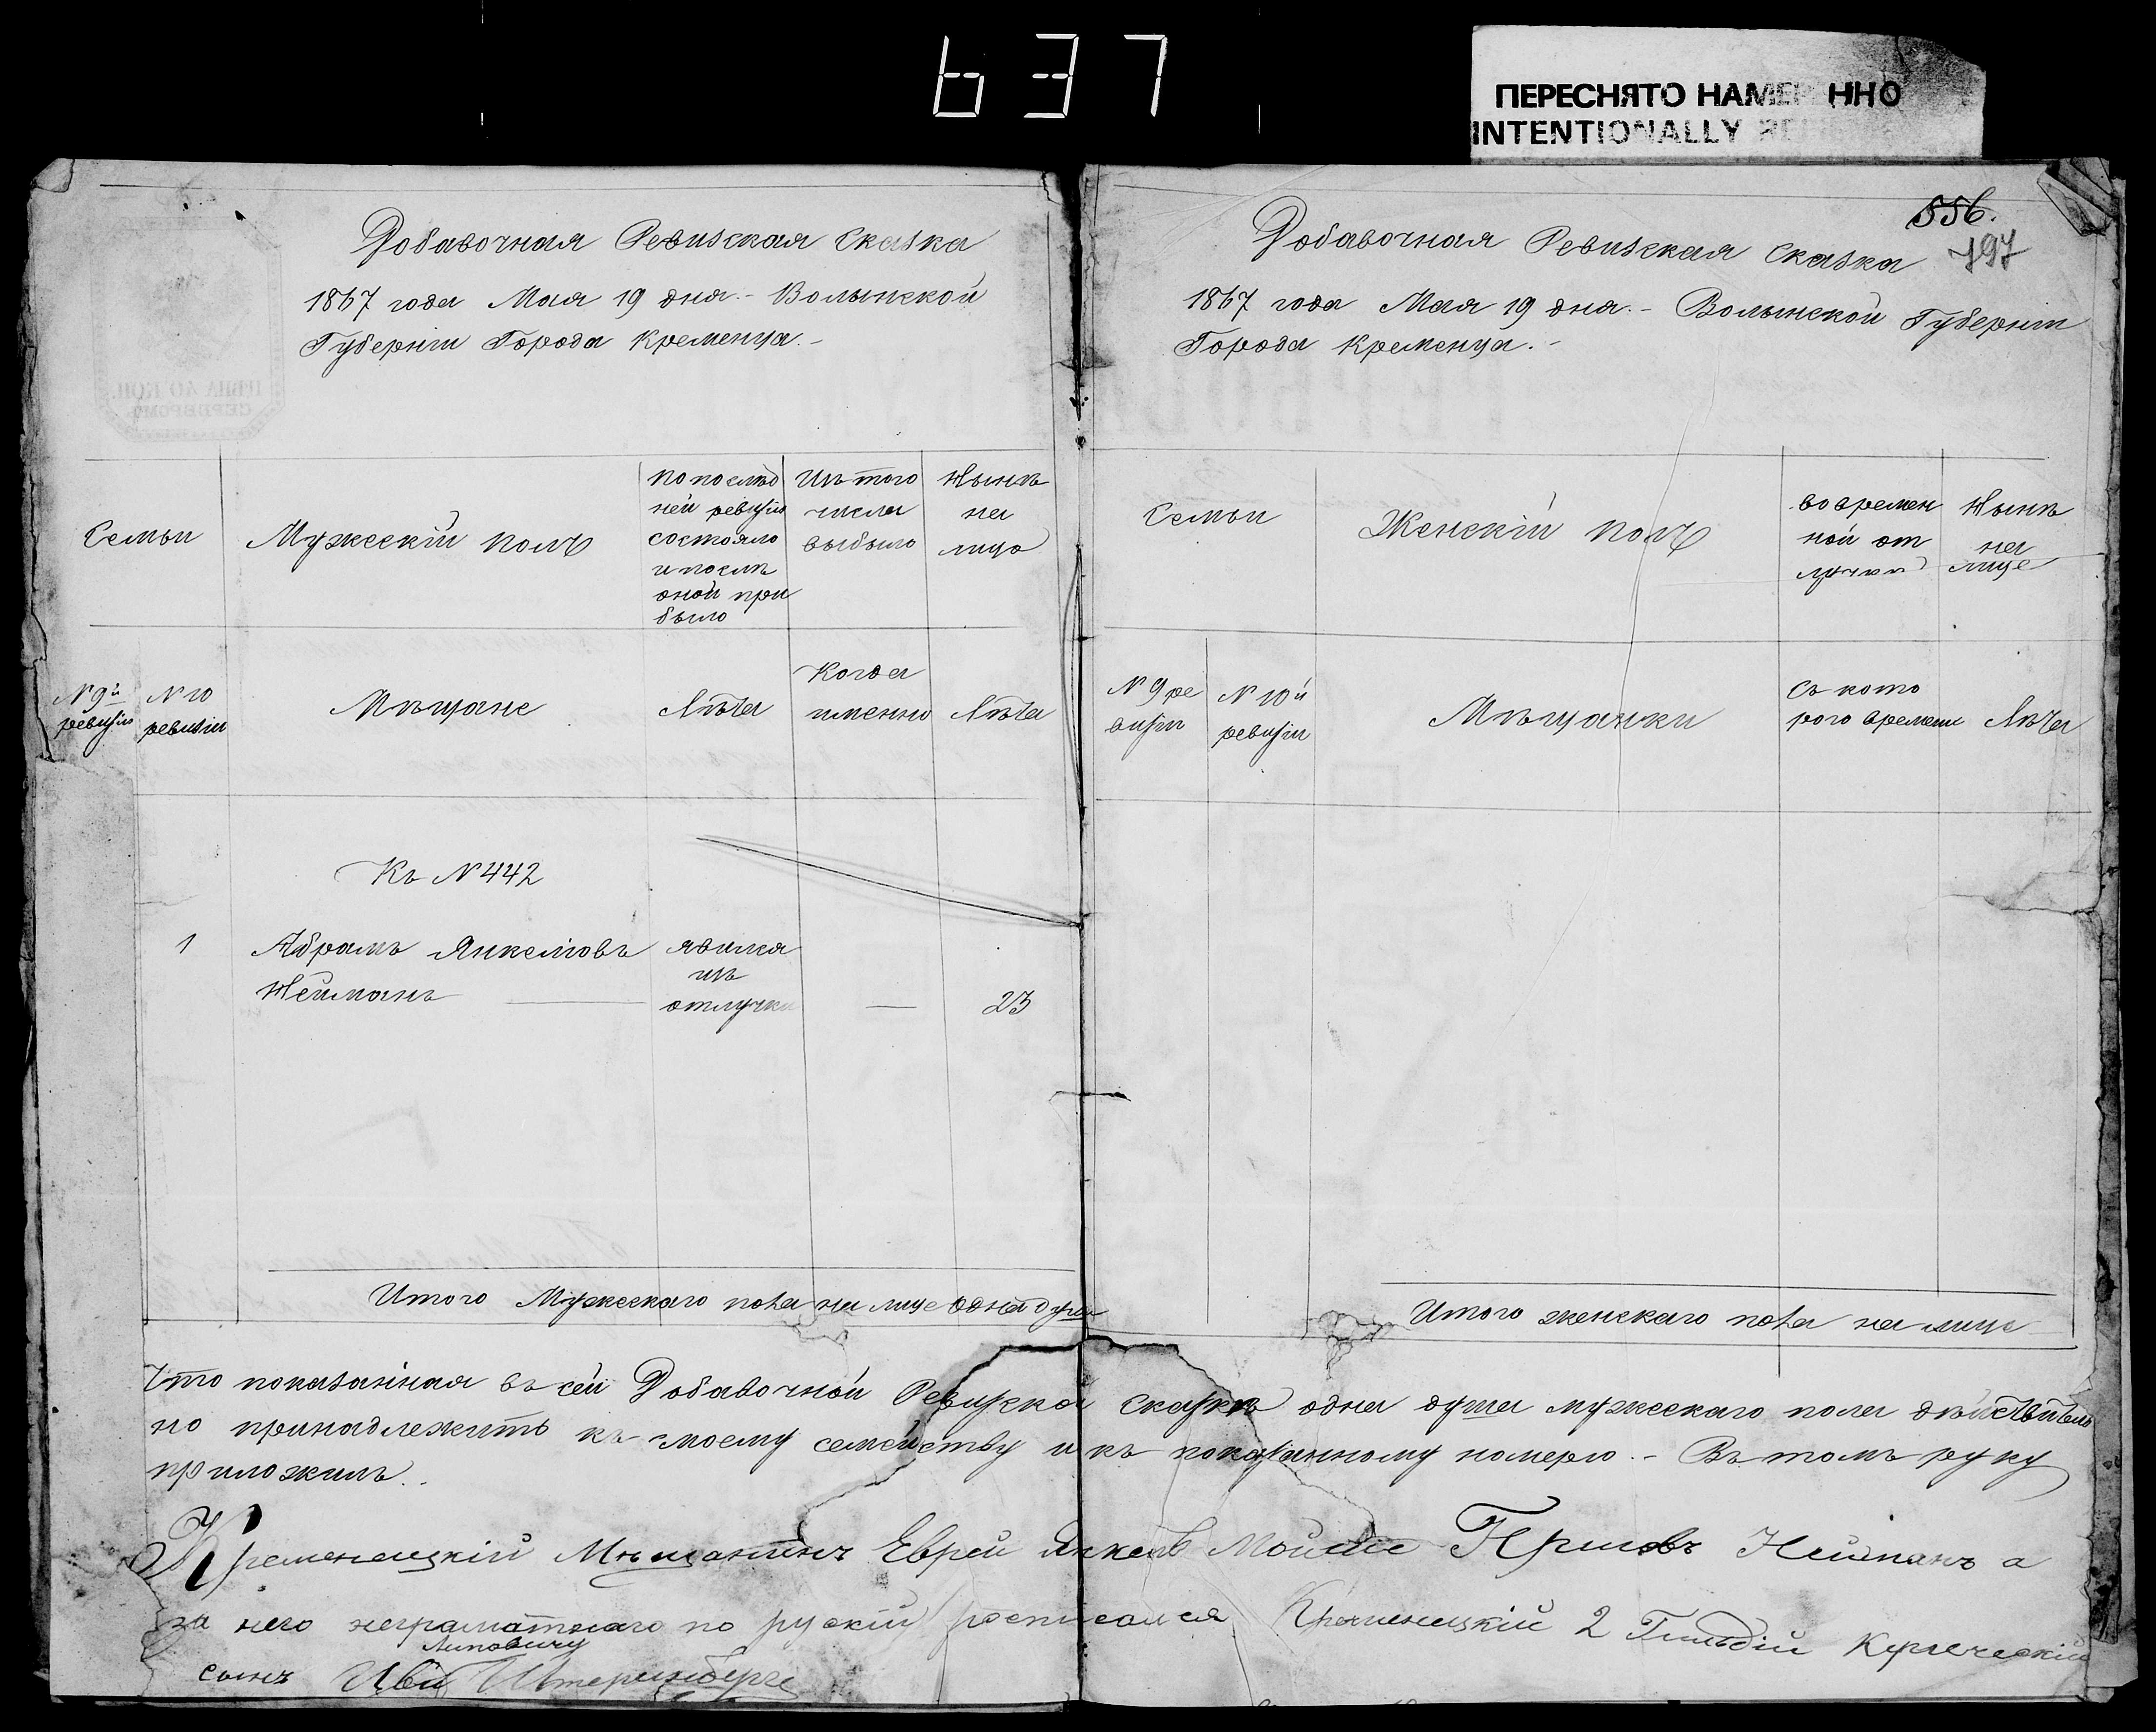 637
ПЕРЕСНЯТО НАМЕ ННО
INTENTIONALLY
Добавочная Ревизская Сказка
1867 года Мая 19 дня.- Волынской
Губерніи Города Кременца.-
ЦѢНА 40 КОП.
СЕРЕБРОМЪ
Семьи
Мужескій полъ
По послѣд
ней ревизіи
состояло
и послѣ
оной при
было
Изъ того
числа
выбыло
Нынѣ
на
лицо
№ 9й
ревизіи
№ 10
ревизіи
Мѣщане
Лѣта
Когда
именно
Лѣта
Къ № 442
1
Абрамъ Янкелiовъ
Нейманъ
явился
изъ
отлучки
—
23
Итого Мужескаго пола на лице одна душа
556.
797
Добавочная Ревизская Сказка
1867 года Мая 19 дня.- Волынской Губерніи
Города Кременца.-
Семьи
Женскій полъ
во времен
ной от
лучки
Нынѣ
на
лице
№ 9 ре
визіи
№ 10й
ревизіи
Мѣщанки
Съ кото
раго времени
Лѣта
Итого женскаго пола на лице
Что показанная въ сей Добавочной Ревизской Сказкѣ одна душа мужескаго пола дѣйствитель
но принадлежитъ къ моему семейству и къ показанному номерю.- Въ томъ руку
приложилъ.-
Кременецкій Мѣщанинъ Еврей Янкель Мойше Гершовъ Нейманъ а
за него неграматнаго по рускій росписался Кременецкій 2 Гильдій Купеческій
сынъ Штеренберге